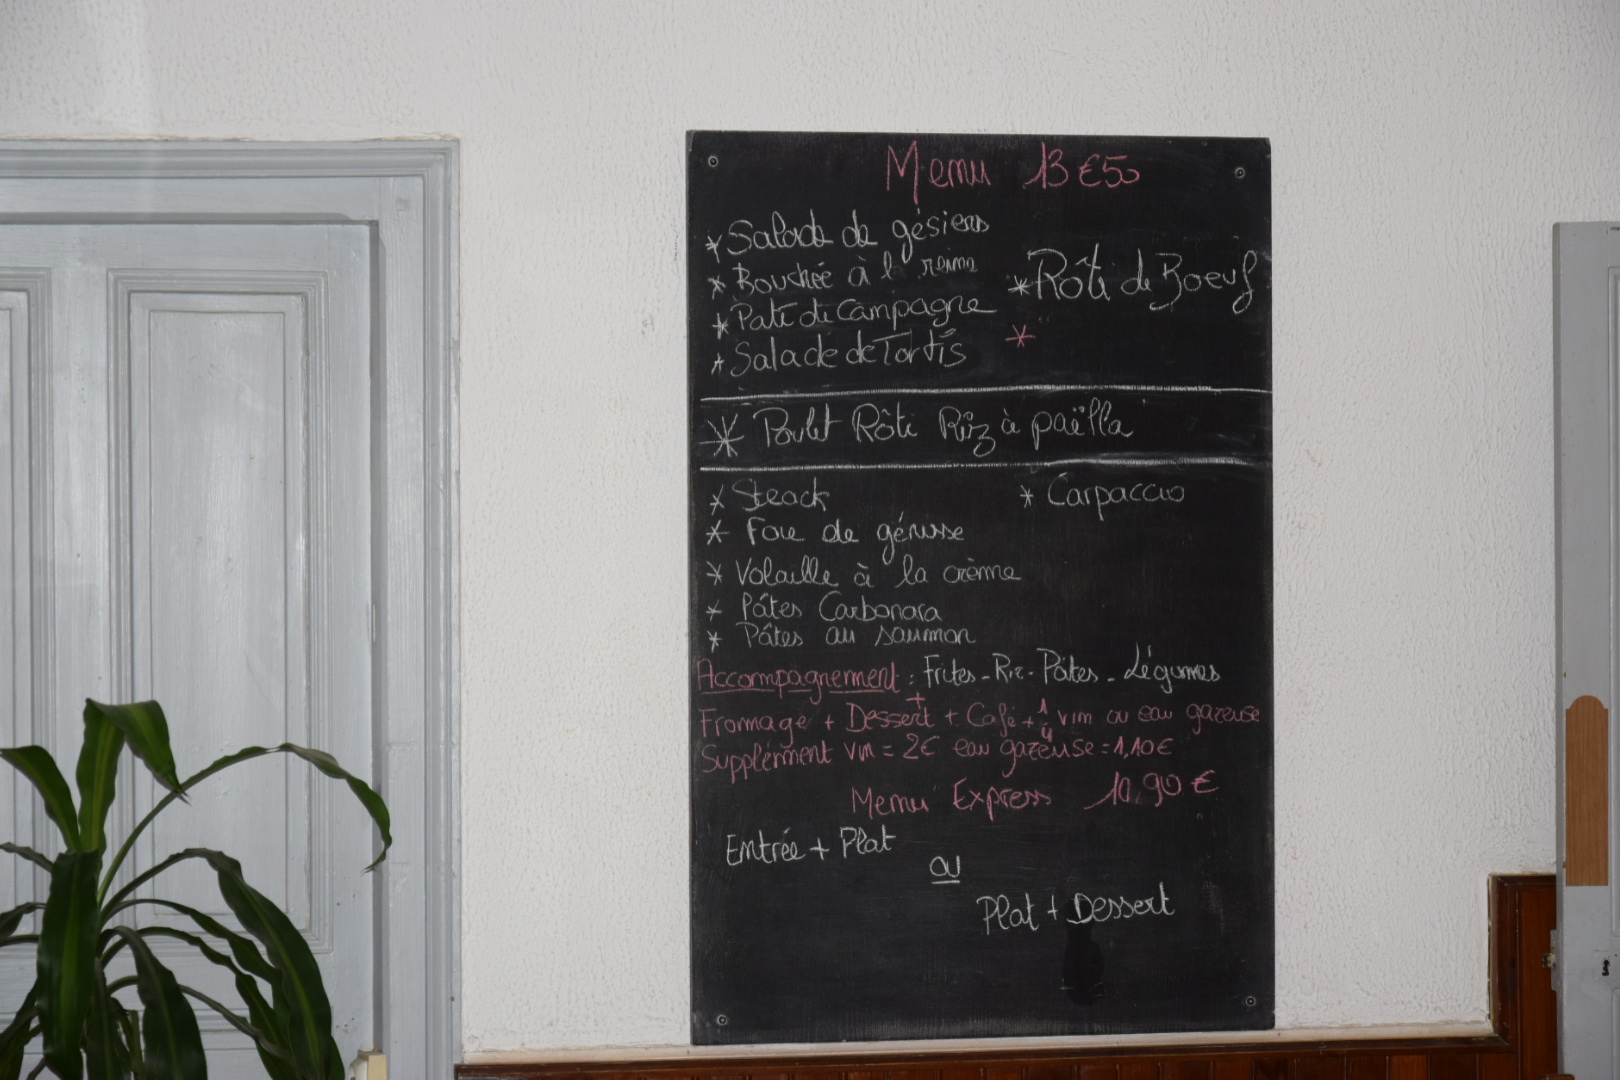 Menu 13€50
* Salade de gésiers
* Bouchée à l reine
* Rôti de Boeuf
* Paté de Campagne
* Salade de Tortis
*
* Poulet Rôti Riz à paëlla
* Steack
* Carpaccio
* Foie de génisse
* Volaille à la crème
* Pâtes Carbonara
* Pâtes au saumon
Accompagnement : Frites - Riz - Pâtes - Légumes
+
Fromage + Dessert + Café + 1/4 vin ou eau gazeuse
Supplément vin = 2€ eau gazeuse = 1,10€
Menu Express 10,90 €
Entrée + Plat
ou
Plat + Dessert